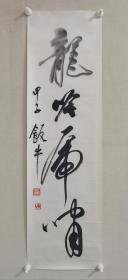 龍吟虎嘯
甲子 飯牛